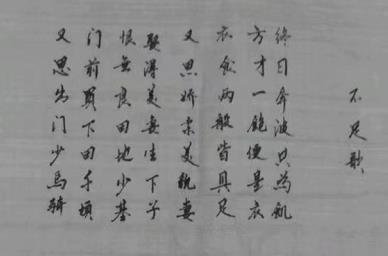 不足歌
终日奔波只为飢
方才一饱便是衣
衣食两般皆具足
又思娇柔美貌妻
娶得美妻生下子
恨無良田地少基
门前買下田千頃
又思出门少馬骑